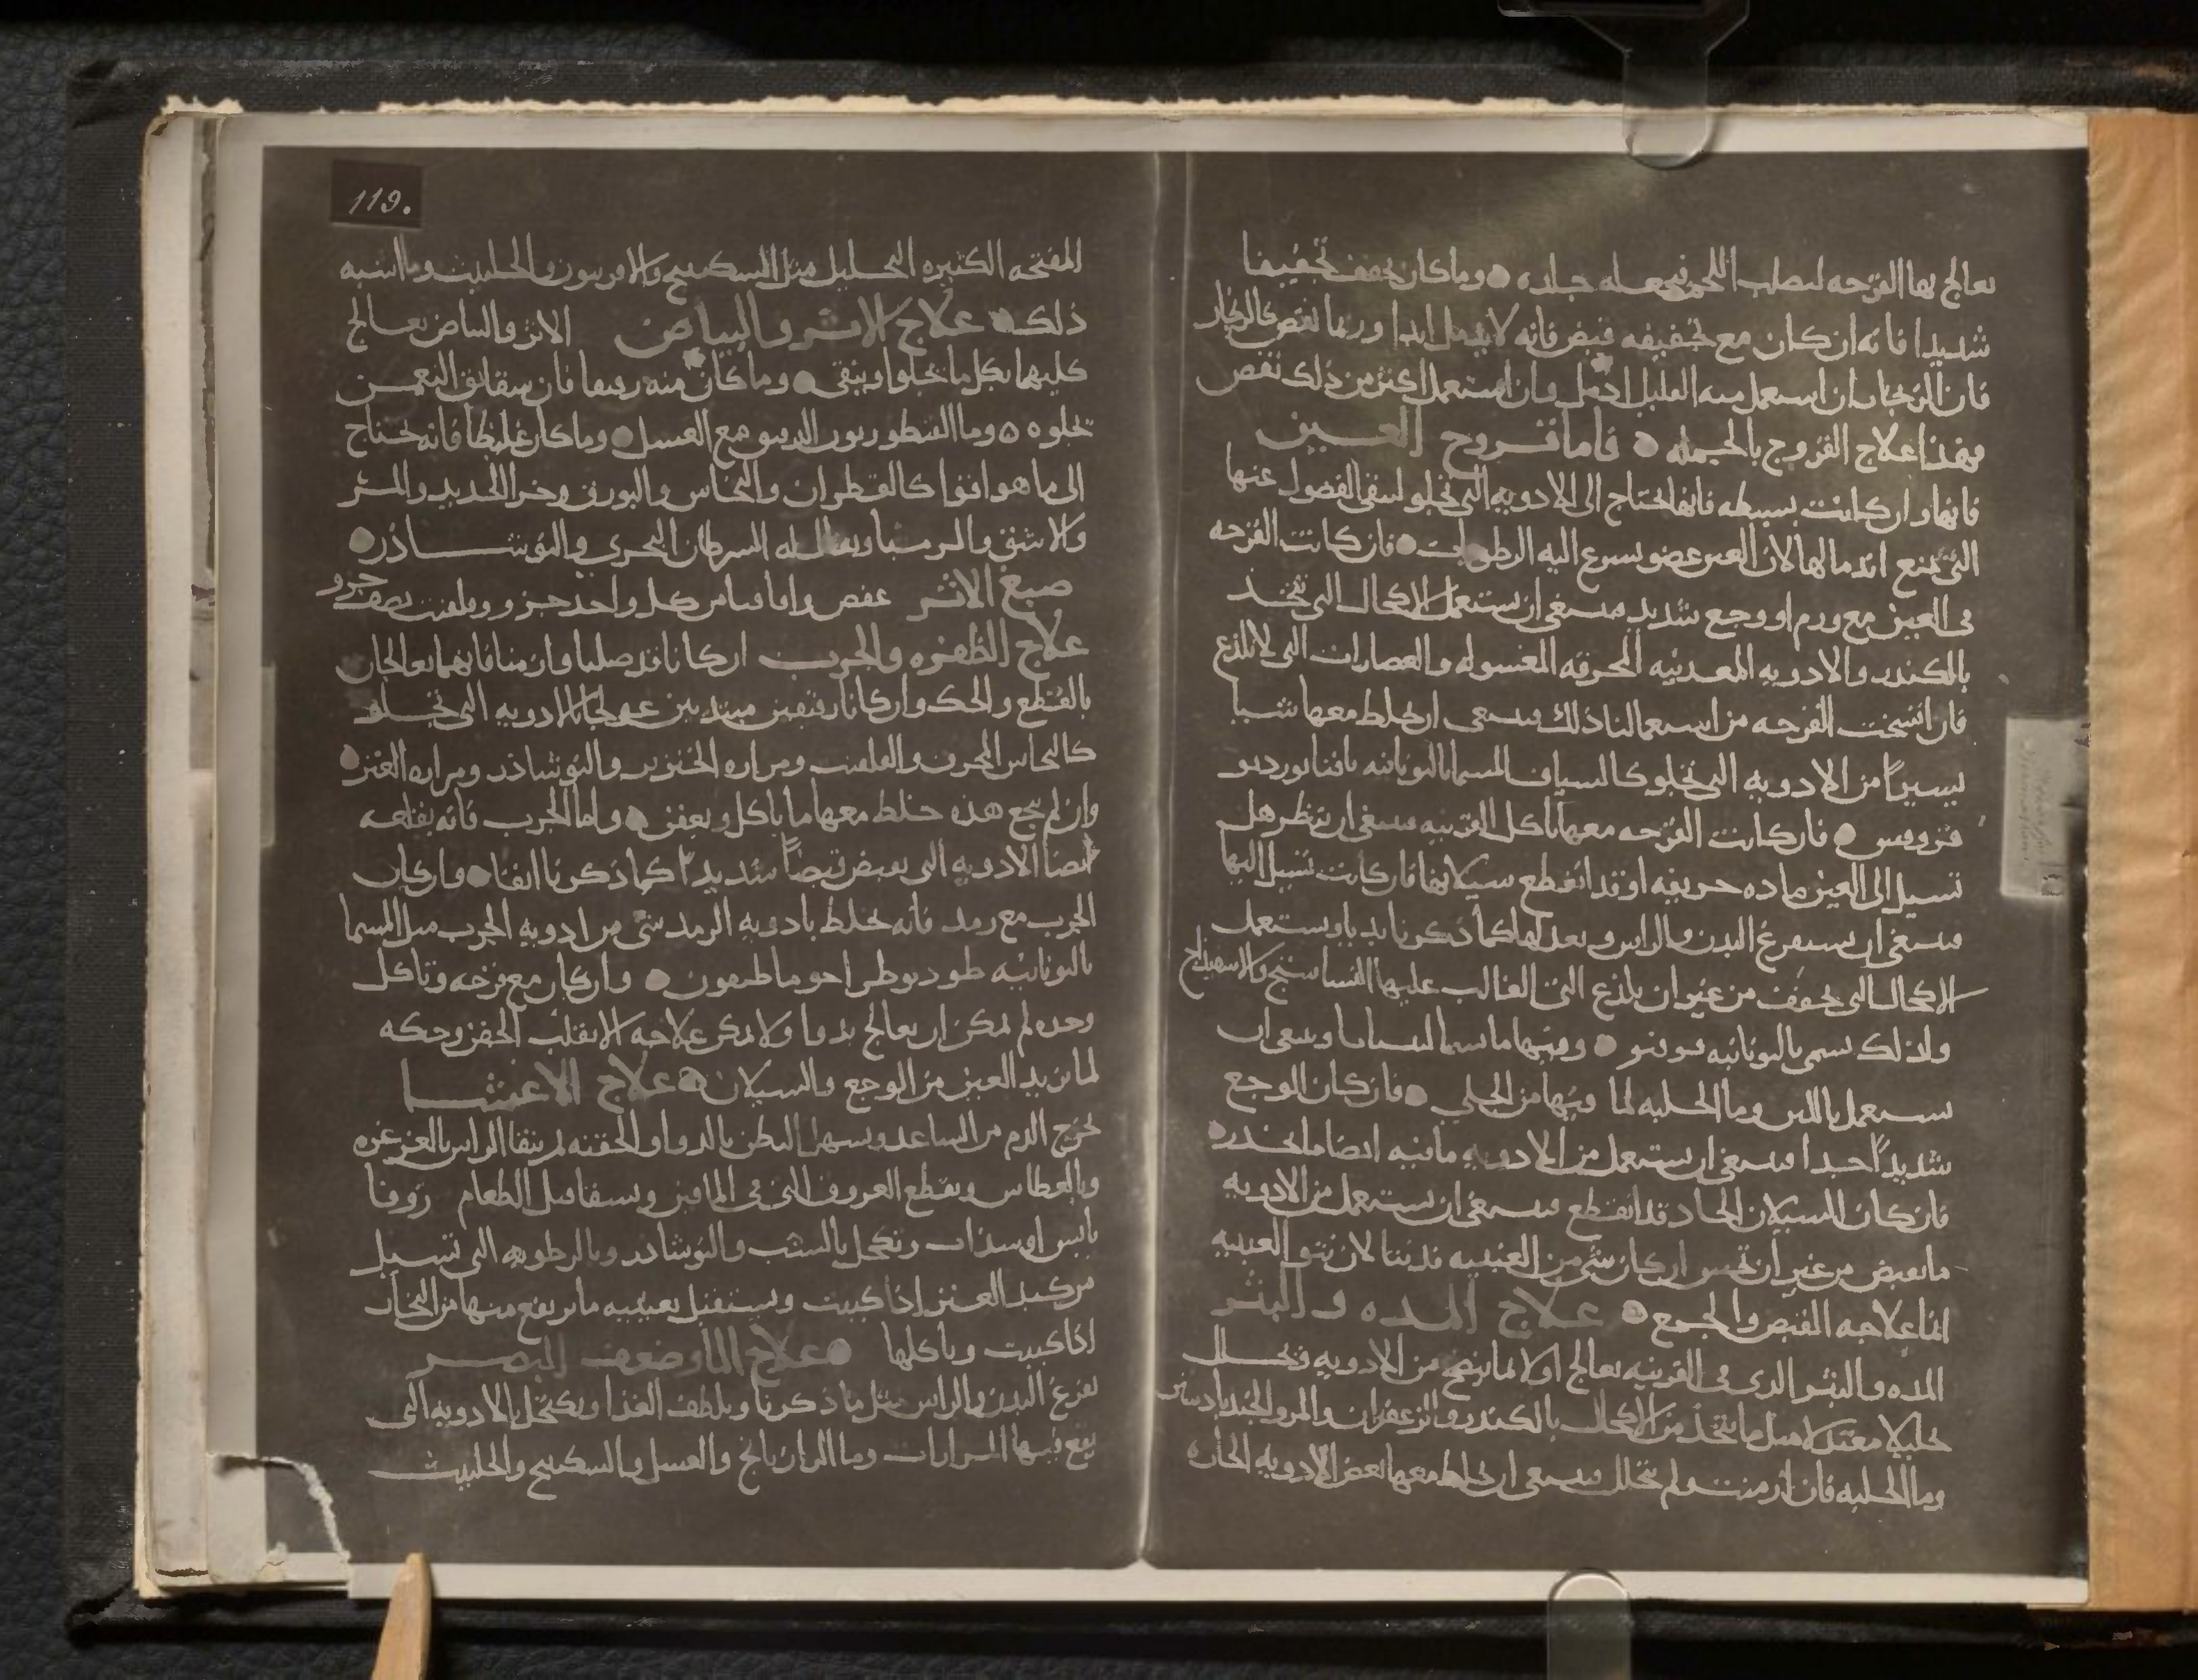 يعالج بها القرحه ليصلب اللحم فيجعله جلده ۝ وما كان يجفف تجفيفا
شديدا فانه ان كان مع تجفيفه قبض فانه لا يدمل ابدا وربما نقص كالزنجار
فان الزنجار ان استعمل منه القليل ادمل وان استعمل اكثر من ذلك نقص
فهذا علاج القروح بالجمله ۝ فاما قروح العين
فانها وان كانت بسيطه فانها تحتاج الى الادويه التي تجلو لتنقي الفضول عنها
التي تمنع اندمالها لان العين عضو يسرع اليه الرطوبات ۝ فان كانت القرحه
في العين مع ورم او وجع شديد فينبغي ان يستعمل الاكحال التي تتخذ
بالكندر والادويه المعدنيه المحرقه المغسوله والعصارات التي لا تلذع
فان اتسخت القرحه من استعمالنا ذلك فينبغي ان يخلط معها شيا
يسيراً من الادويه التي تجلو كالسياف المسما باليونانيه
فان كانت القرحه معها تاكل القرنيه فينبغي ان تنظر هل
تسيل الى العين ماده حريفه او قد انقطع سيلانها فان كانت تسيل اليها
فينبغي ان يستفرغ البدن والراس ويعدلهما كما ذكرنا بديا ويستعمل
الاكحال التي تجفف من غير ان يلذع التي الغالب عليها النشاستج والاسفيداج
ولذلك سمي باليونانيه ۝ ومنها ما يسما وينبغي ان
يستعمل باللبن وما الحلبه لما فيها من الجلي ۝ فان كان الوجع
شديداً جدا فينبغي ان يستعمل من الادويه ما فيه ايضا ما يخدر ۝
فان كان السيلان الحاد قد انقطع فينبغي ان يستعمل من الادويه
ما يقبض من غير ان تخشن ان كان شي من العنبيه قد نتا لان نتو العنبيه
انما علاجه القبض والجمع ۝ علاج المده والبثر
المده والبثر الذي في القرنيه يعالج اولا بما ينضج من الادويه ويحلل
تحليلا معتدلا مثل ما يتخذ من الاكحال بالكندر والزعفران والمر والجندبادستر
وما الحلبه فان ازمنت ولم تتحلل فينبغي ان يخلط معها بعض الادويه الحاره
119.
المفتحه الكثيره التحليل مثل السكبينج والافربيون والحلتيت وما اشبه
ذلك ۝ علاج الاثر والبياض الاثر والبياض يعالج
كليهما بكل ما يجلوا وينقي ۝ وما كان منه رقيقا فان شقائق النعمن
تجلوه ۝ وما القنطوريون الدقيق مع العسل ۝ وما كان غليظا فانه يحتاج
الى ما هو اقوا كالقطران والنحاس والبورق وخر الحديد والمر
والاشق والسرطان البحري والنوشادر ۝
صبغ الاثر عفص واقاقيا من كل واحد جزو وقلقنت نصف جزو
علاج الظفره والجرب ان كانا قد صلبا وازمنا فانهما يعالجان
بالقطع والحك وان كانا رقيقين مبتدئين عولجا بالادويه التي تجلو
كالنحاس المحرق والقلقنت ومراره الخنزير والنوشادر ومراره العنز ۝
وان لم ينجع هذه خلط معها ما ياكل ويعفن ۝ واما الجرب فانه يقلعه
ايضا الادويه التي تقبض قبضاً شديداً كما ذكرنا انفا ۝ وان كان
الجرب مع رمد فانه يخلط بادويه الرمد شي من ادويه الجرب مثل المسما
باليونانيه ۝ وان كان مع قرحه وتاكل
وحده لم يمكن ان يعالج بدوا ولا يمكن علاجه الا بقلب الجفن وحكه
لما يزيد العين من الوجع والسيلان ۝ علاج الاعشا
يخرج الدم من الساعد ويسهل البطن بالدوا او الحقنه ثم ينقا الراس بالغرغره
وبالعطاس ويقطع العروق التي في الماقين ويسقا قبل الطعام زوفا
يابس او سذاب ويكحل بالشب والنوشادر وبالرطوبه التي تسيل
من كبد العنز اذا كببت ويستقبل بعينيه ما يرتفع منها من البخار
اذا كببت وياكلها ۝ علاج الما وضعف البصر
يفرغ البدن والراس مثل ما ذكرنا ويلطف الغذا ويكتحل بالادويه التي
يقع فيها المرارات وما الرازيانج والعسل والسكبينج والحلتيت